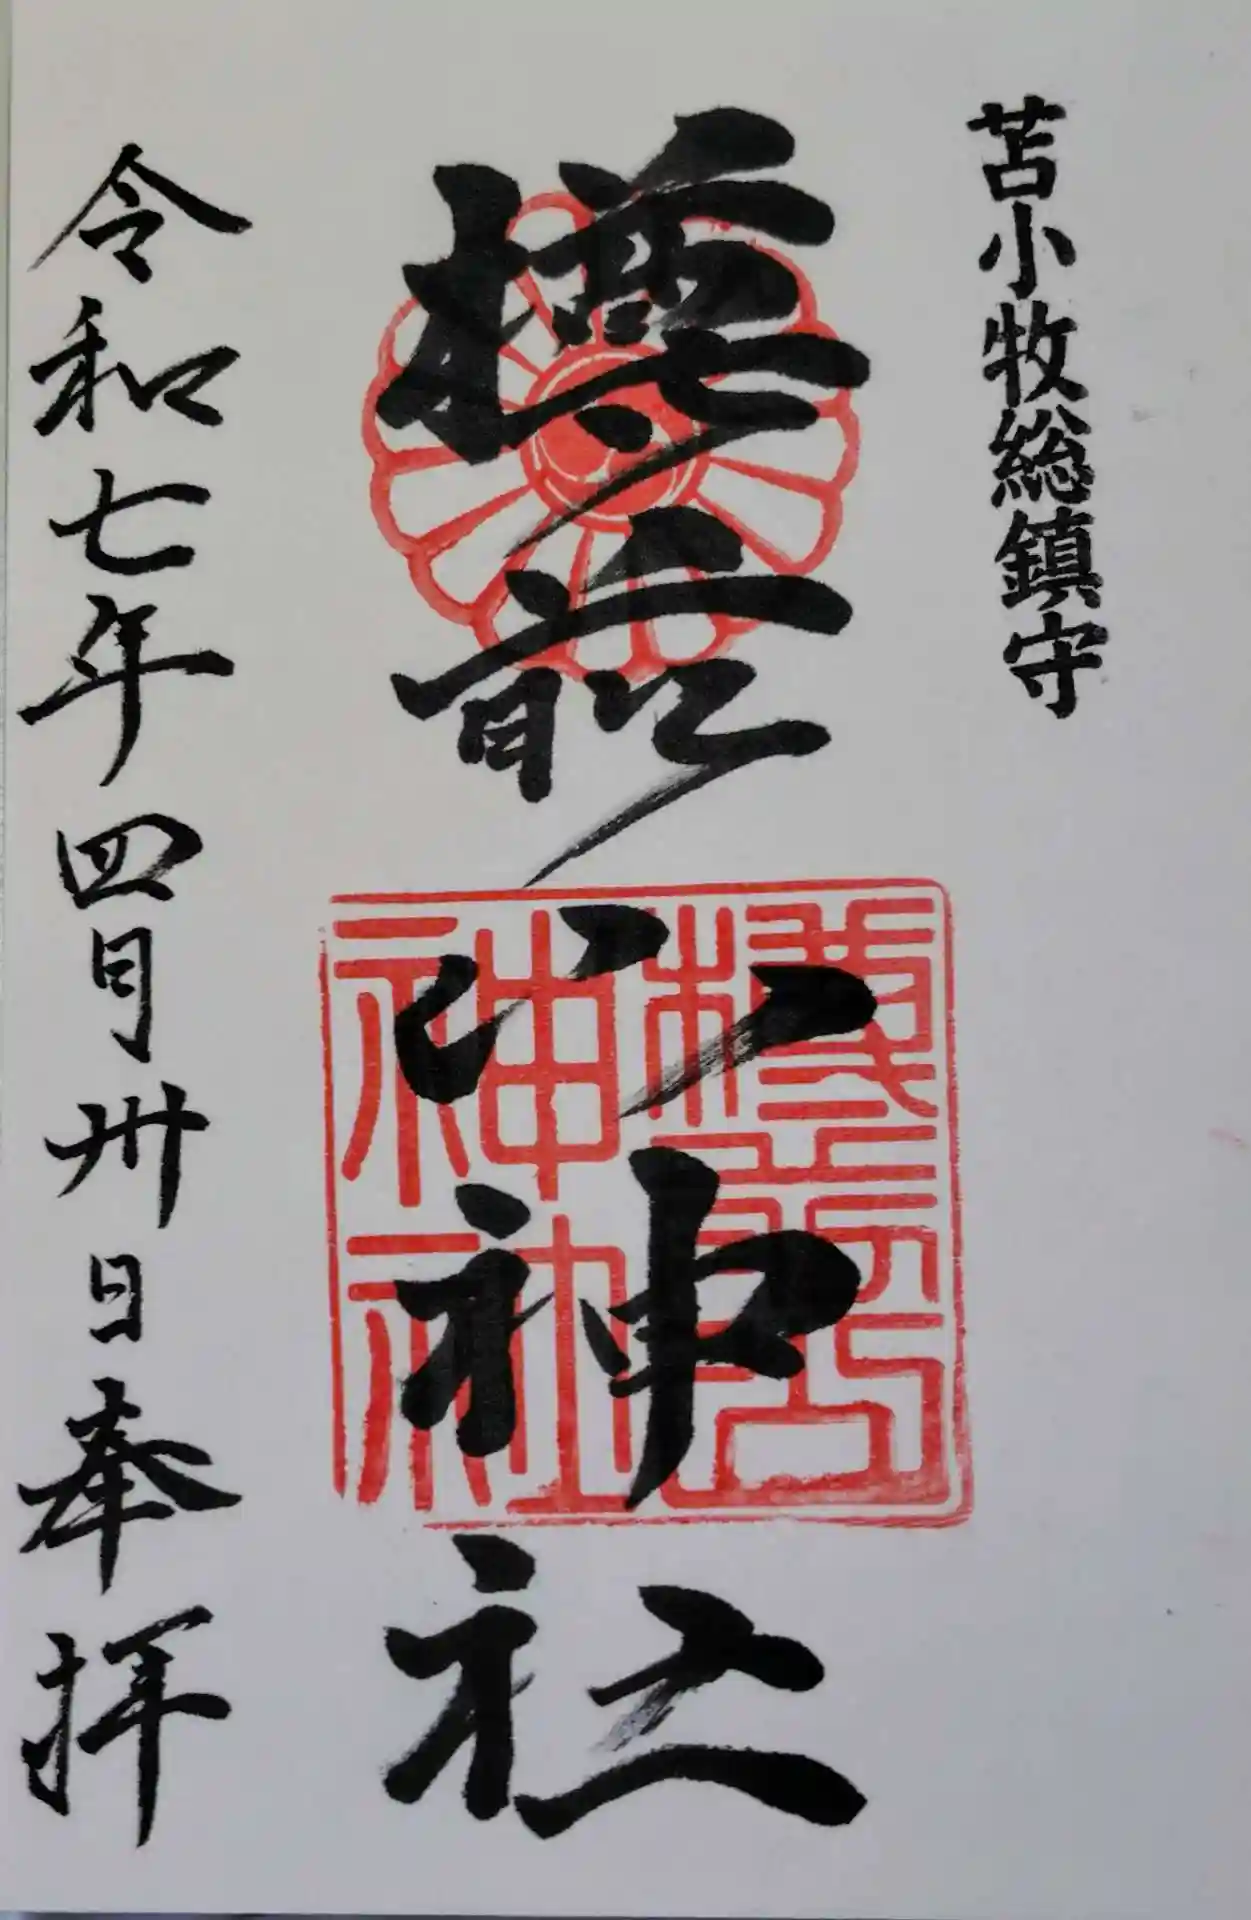 苫小牧総鎮守
樽前山神社
令和七年四月卅日奉拝
樽前山
神社